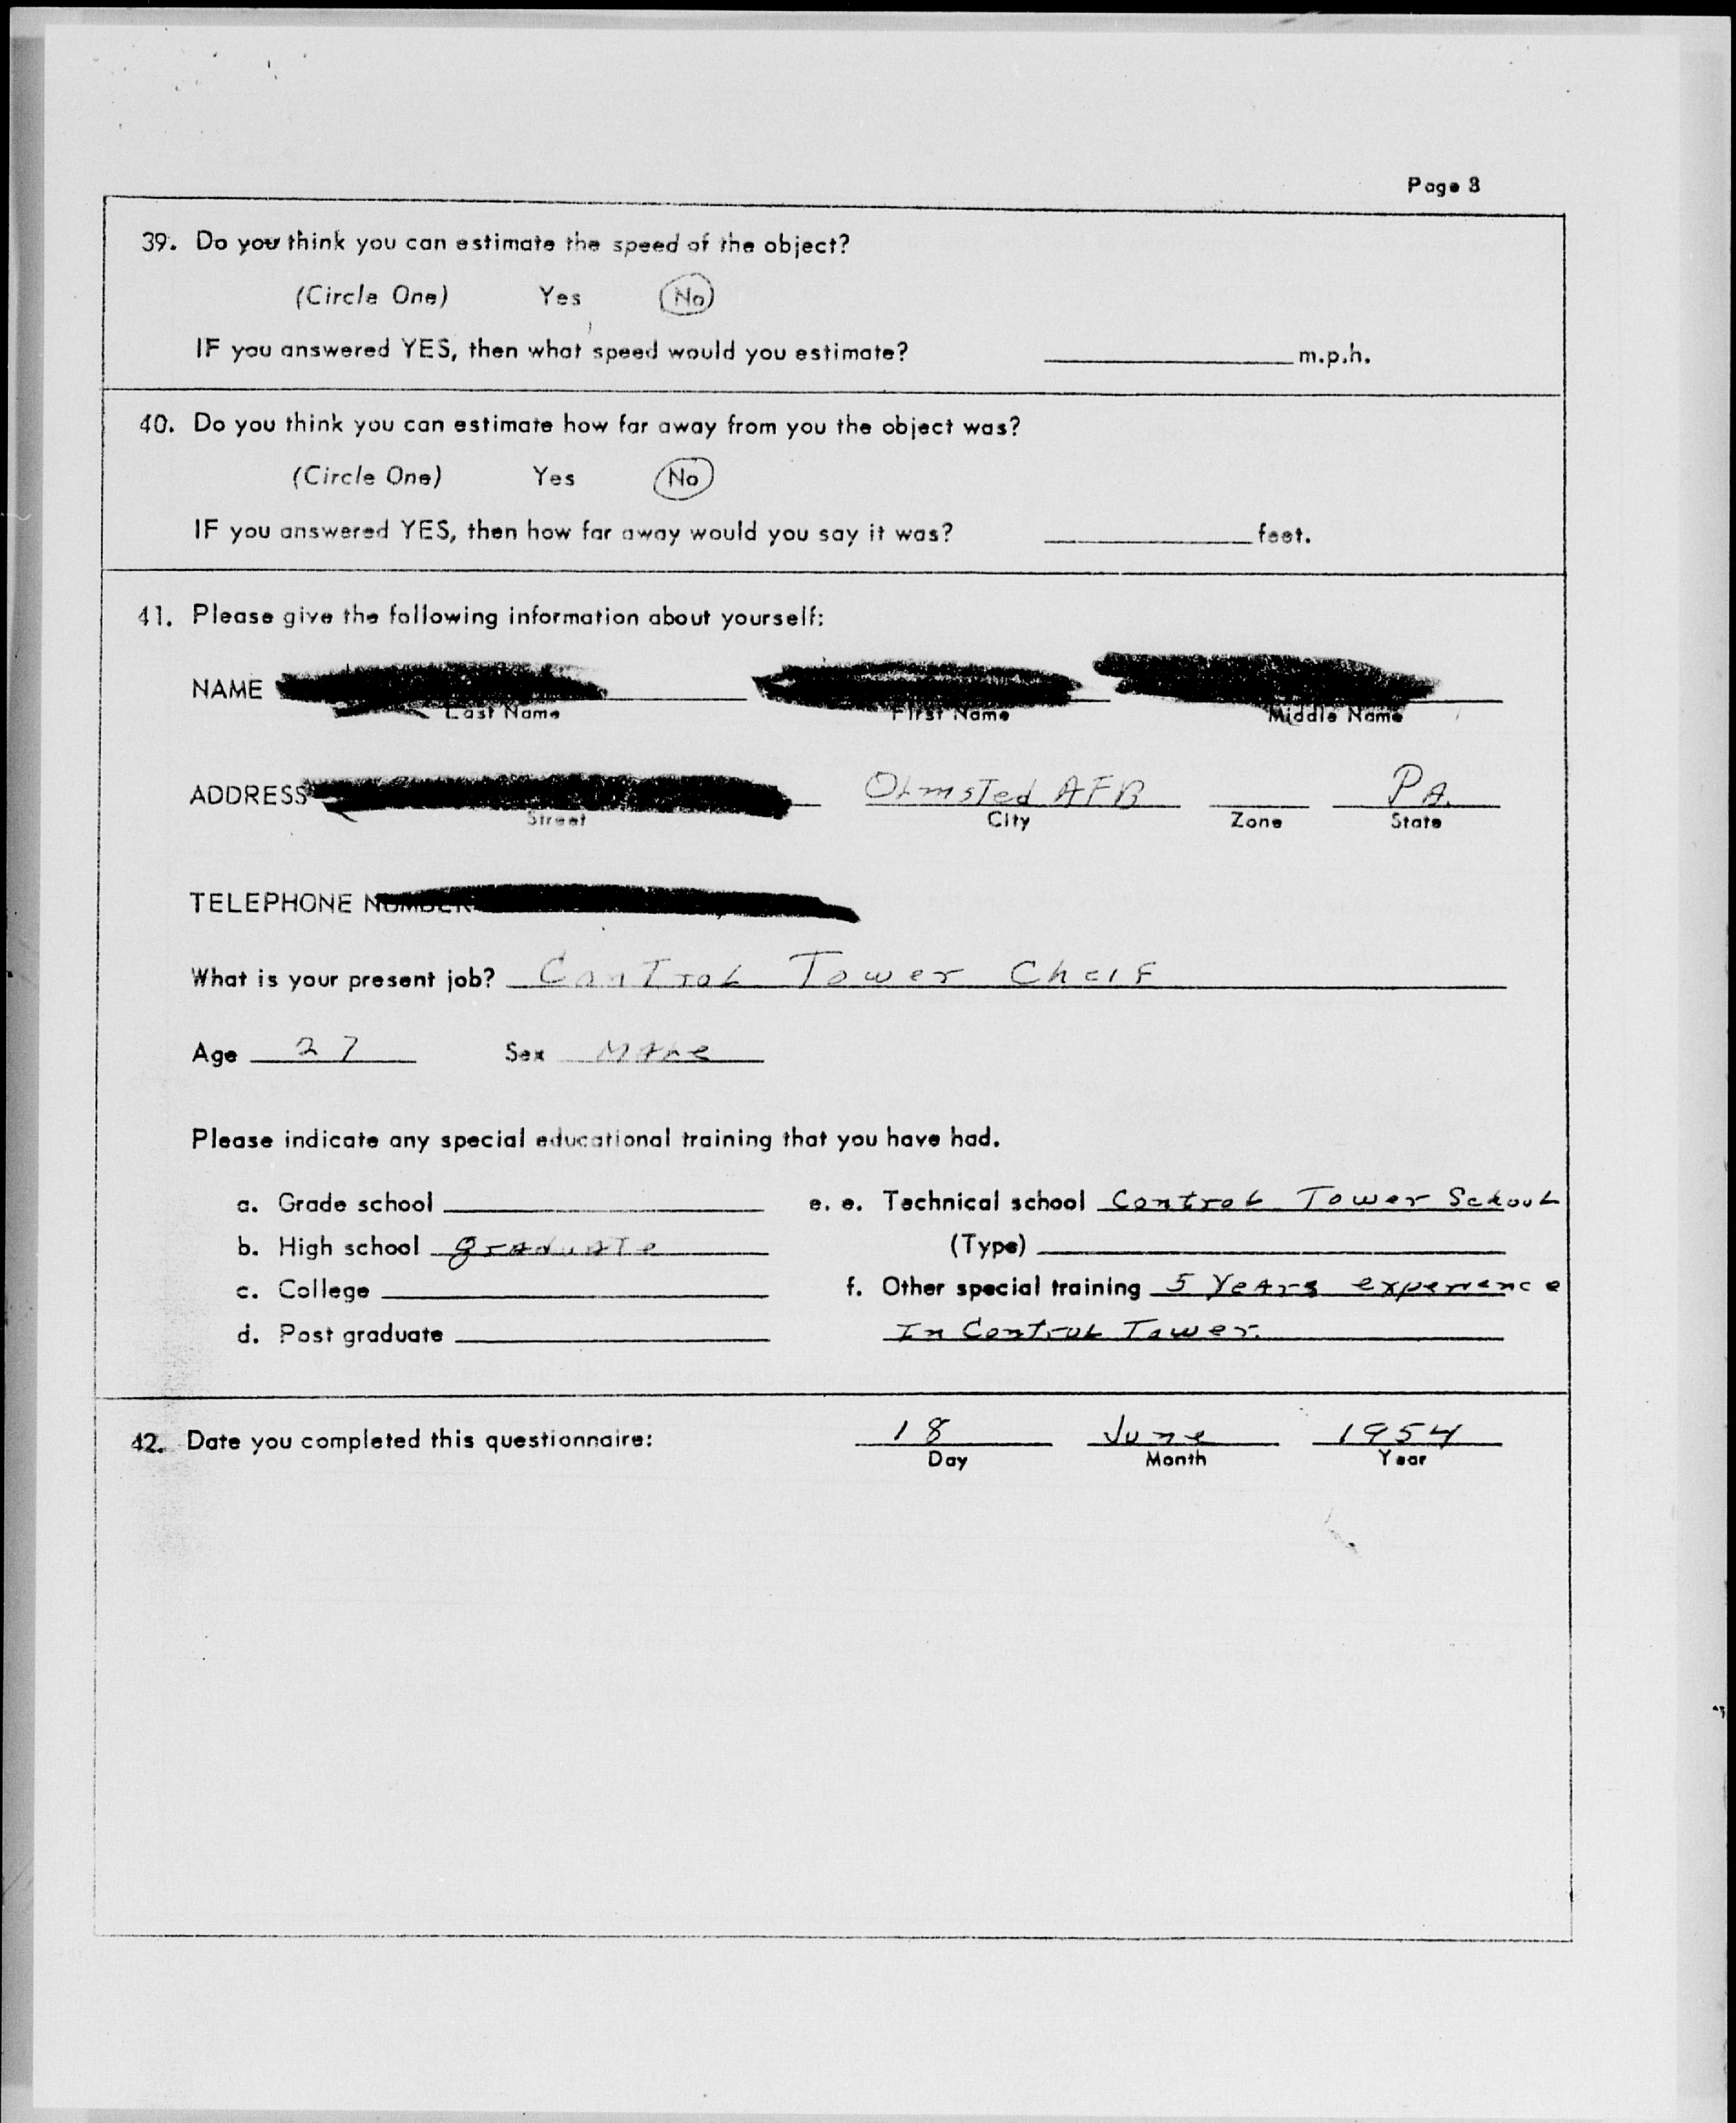 Page 8
39. Do you think you can estimate the speed of the object?
(Circle One) Yes No
IF you answered YES, then what speed would you estimate? m.p.h.
40. Do you think you can estimate how far away from you the object was?
(Circle One) Yes No
IF you answered YES, then how far away would you say it was? feet.
41. Please give the following information about yourself:
NAME
Last Name First Name Middle Name
ADDRESS Olmsted AFB PA.
Street City Zone State
TELEPHONE NUMBER
What is your present job? Control Tower Cheif
Age 27 Sex Male
Please indicate any special educational training that you have had.
a. Grade school e. e. Technical school Control Tower School
b. High school graduate (Type)
c. College f. Other special training 5 Years experience
d. Post graduate In Control Tower.
42. Date you completed this questionnaire: 18 June 1954
Day Month Year